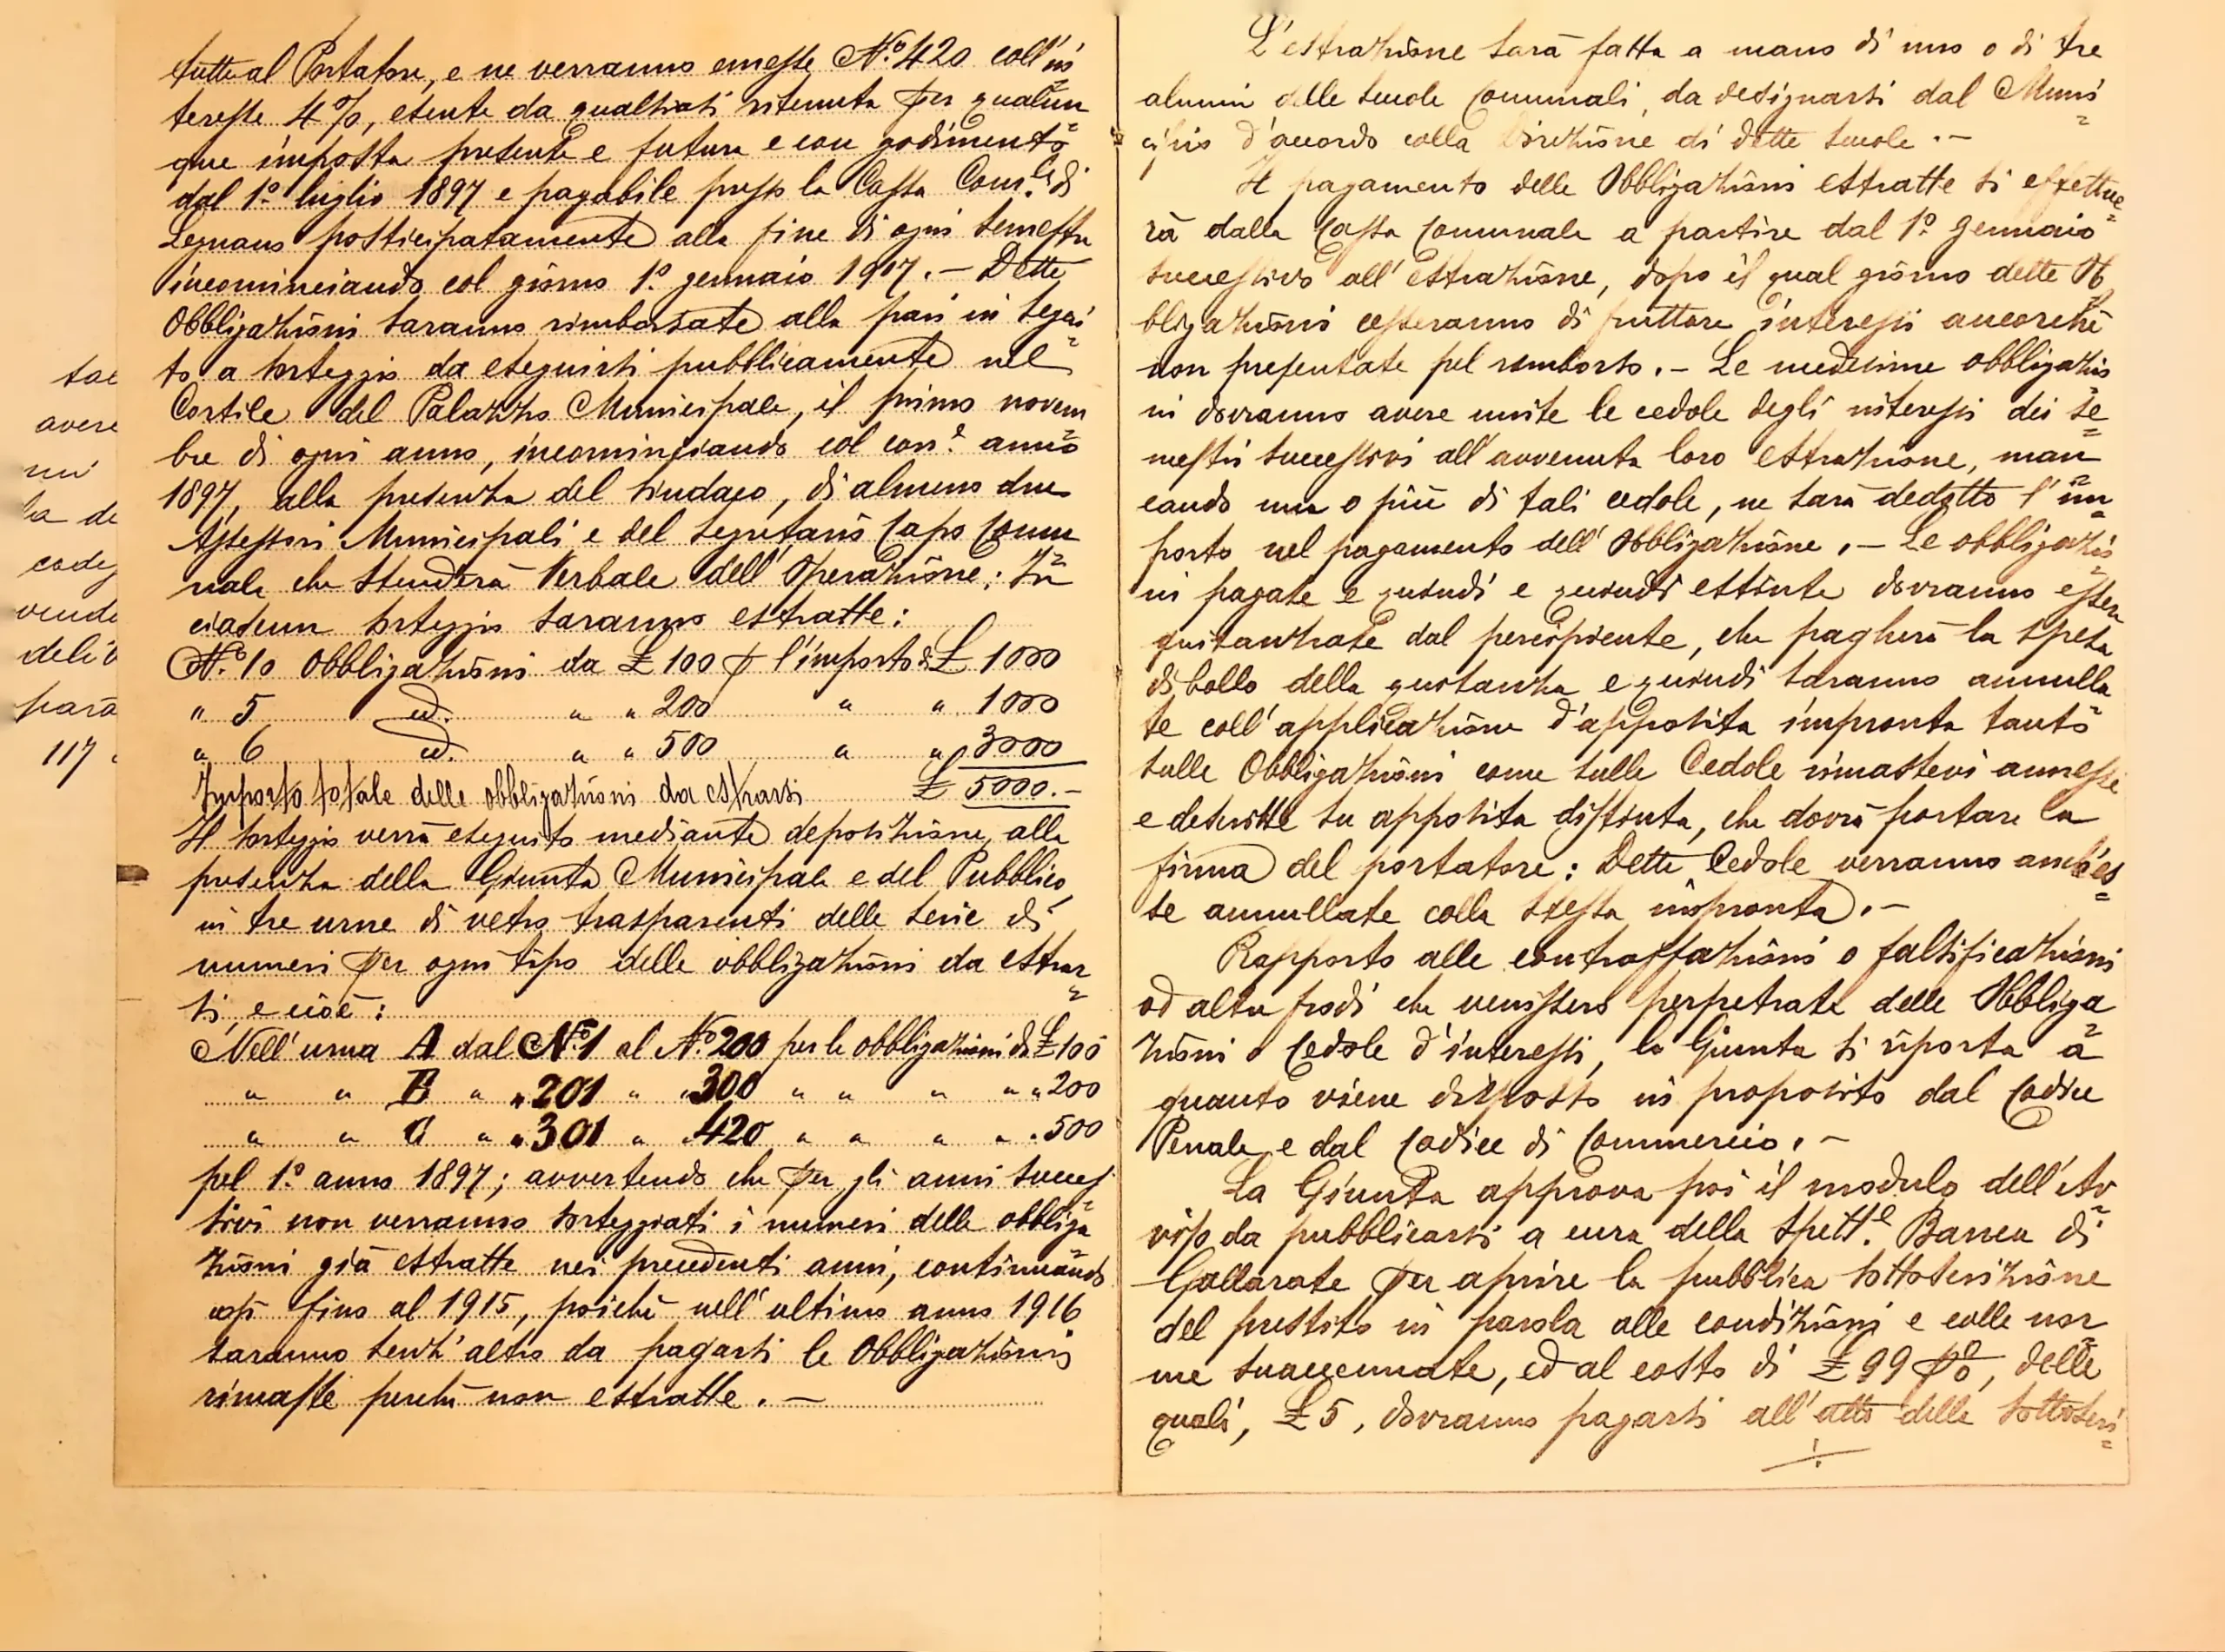 tutte al Portatore, e ne verranno emesse N.º 420 coll'in
teresse 4%, esente da qualsiasi ritenuta per qualun
que imposta presente e futura e con godimento
dal 1º luglio 1897 e pagabile presso la Cassa Com.le di
Legnano posticipatamente alla fine di ogni semestre
incominciando col giorno 1º gennaio 1907. — Dette
Obbligazioni saranno rimborsate alla pari in segui
to a sorteggio da eseguirsi pubblicamente nel
Cortile del Palazzo Municipale, il primo novem
bre di ogni anno, incominciando col corr.e anno
1897, alla presenza del Sindaco, di almeno due
Assessori Municipali e del Segretario Capo Comu
nale che stenderà Verbale dell'Operazione: In
ciascun sorteggio saranno estratte:
N.º 10 Obbligazioni da £ 100 p l'importo di £ 1000
" 5 id. " " 200 " " 1000
" 6 id. " " 500 " " 3000
Importo totale delle obbligazioni da estrarsi £ 5000.—
Il sorteggio verrà eseguito mediante deposizione, alla
presenza della Giunta Municipale e del Pubblico,
in tre urne di vetro trasparenti delle serie di
numeri per ogni tipo delle obbligazioni da estrar
si, e cioè:
Nell'urna A dal N.º 1 al N.º 200 per le obbligazioni di £ 100
" " B " " 201 " " 300 " " " " " 200
" " C " " 301 " " 420 " " " " " 500
pel 1º anno 1897; avvertendo che per gli anni succes
sivi non verranno sorteggiati i numeri delle obbliga
zioni già estratte nei precedenti anni, continuando
così fino al 1915, poichè nell'ultimo anno 1916
saranno senz'altro da pagarsi le Obbligazioni
rimaste perchè non estratte. —
L'estrazione sarà fatta a mano di uno o di tre
alunni delle Scuole Comunali, da designarsi dal Muni
cipio d'accordo colla Direzione di dette Scuole. —
Il pagamento delle Obbligazioni estratte si effettue
rà dalla Cassa Comunale a partire dal 1º Gennaio
successivo all'estrazione, dopo il qual giorno dette Ob
bligazioni cesseranno di fruttare interessi ancorchè
non presentate pel rimborso. — Le medesime obbligazio
ni dovranno avere unite le cedole degli interessi dei se
mestri successivi all'avvenuta loro estrazione, man
cando una o più di tali cedole, ne sarà dedotto l'im
porto nel pagamento dell'Obbligazione. — Le obbligazio
ni pagate e quindi e quindi estinte dovranno esser
quitanzate dal percipiente, che pagherà la spesa
di bollo della quitanza e quindi saranno annulla
te coll'applicazione d'apposita impronta tanto
sulle Obbligazioni come sulle Cedole rimastevi annesse
e descritte su apposita distinta, che dovrà portare la
firma del portatore: Dette Cedole verranno anch'es
se annullate colla stessa impronta. —
Rapporto alle contraffazioni o falsificazioni
od altre frodi che venissero perpetrate delle Obbliga
zioni o Cedole d'interessi, la Giunta si riporta a
quanto viene disposto in proposito dal Codice
Penale e dal Codice di Commercio. —
La Giunta approva poi il modulo dell'Av
viso da pubblicarsi a cura della Spett.e Banca di
Gallarate per aprire la pubblica sottoscrizione
del prestito in parola alle condizioni e colle nor
me suaccennate, ed al costo di £ 99 p%, delle
quali, £ 5, dovranno pagarsi all'atto delle sottoscri
avere
la de
vende
delib
parà
117